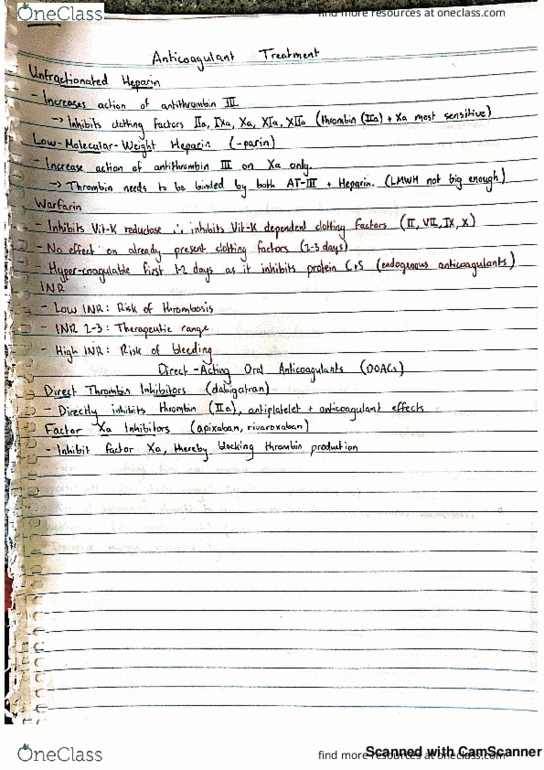 OneClass
find more resources at oneclass.com
Anticoagulant Treatment
Unfractionated Heparin
- Increases action of antithrombin III
-> Inhibits clotting factors IIa, IXa, Xa, XIa, XIIa (thrombin (IIa) + Xa most sensitive)
Low-Molecular-Weight Heparin (-parin)
- Increase action of antithrombin III on Xa only.
-> Thrombin needs to be binded by both AT-III + Heparin. (LMWH not big enough)
Warfarin
- Inhibits Vit-K reductase ∴ inhibits Vit-K dependent clotting factors (II, VII, IX, X)
- No effect on already present clotting factors (2-3 days)
- Hyper-coagulable first 1-2 days as it inhibits protein C+S (endogenous anticoagulants)
INR
- Low INR: Risk of thrombosis
- INR 2-3: Therapeutic range
- High INR: Risk of bleeding
Direct-Acting Oral Anticoagulants (DOACs)
Direct Thrombin Inhibitors (dabigatran)
- Directly inhibits thrombin (IIa), antiplatelet + anticoagulant effects
Factor Xa Inhibitors (apixaban, rivaroxaban)
- Inhibit factor Xa, thereby blocking thrombin production
OneClass
find more resources at oneclass.com
Scanned with CamScanner